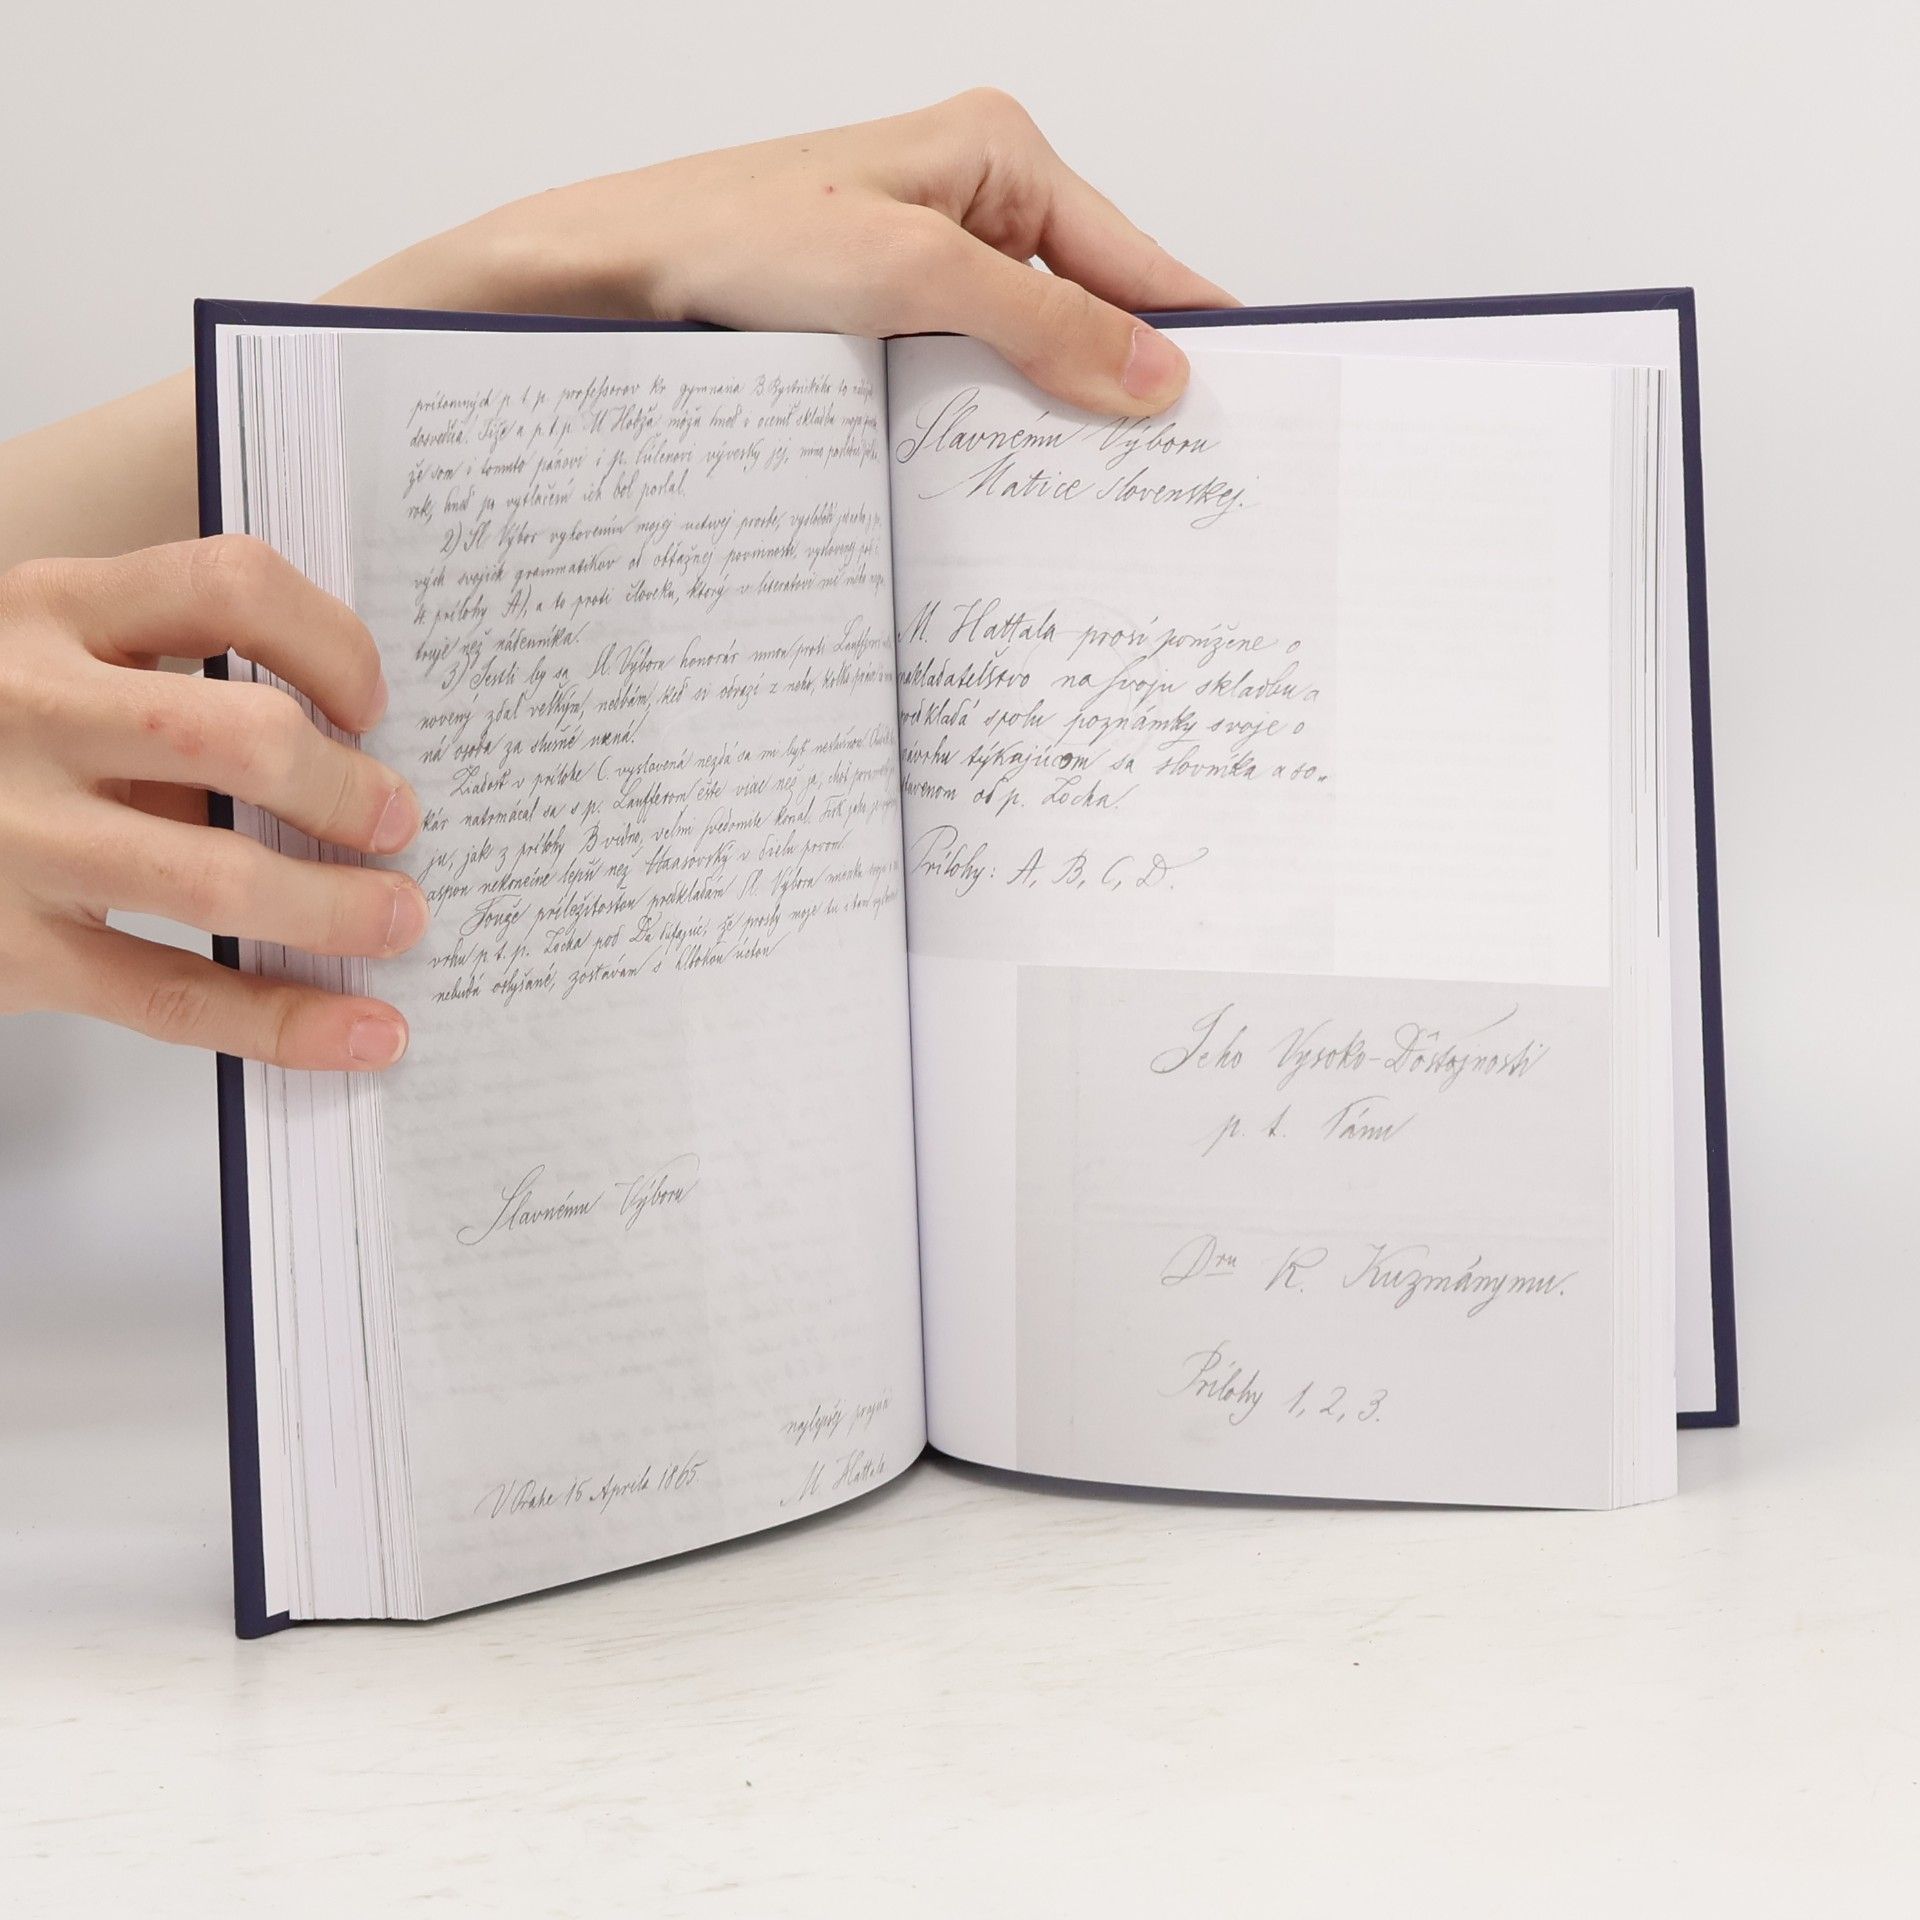 prítomných p. t. p. professorov kr. gymnasia B
dosvedčia. Tíže a p. t. p. M Hodža môžu hneď i oceniť skladbu
že som i tomuto pánovi i p. Čulenovi vývesky jej, mnou
rok, hneď po vytlačení ich bol poslal.
2) Sl. Výbor vyhovením mojej uctivej prosbe,
vých svojich grammatikov od obtažnej povinnosti,
4. prílohy A), a to proti človeku, ktorý v literatúri
truje než nádenníka.
3) Jestli by sa Sl. Výboru honorár mnou proti
novený zdal velkým, nedbám, keď si odrazí z neho,
ná osoba za slušné uzná.
Žiadosť v prílohe C. vyslovená nezdá sa mi byť
kár natrmácal sa s p. Laufferom ešte viac než ja,
ju, jak z prílohy B vidno, veľmi svedomite konal.
aspon nekonečne lepší než Haasovský v dielu prvom.
Touže príležitosťou predkladám Sl. Výboru
vrhu p. t. p. Zocha pod D a dúfajúc, že prosby moje tu
nebudú oslyšané, zostávam s hlbokou úctou
Slavnému Výboru
najlepšej
V Prahe 15 Aprila 1865.
M. Hattala
Slavnému Výboru
Matice slovenskej.
M. Hattala prosí ponížene o
nakladateľstvo na svoju skladbu a
predkladá spolu poznámky svoje o
návrhu týkajúcom sa slovníka a so„
stavenom od p. Zocha.
Prílohy: A, B, C, D.
Jeho Vysoko-Dôstojnosti
p. t. Pánu
Dru K. Kuzmánymu.
Prílohy 1, 2, 3.